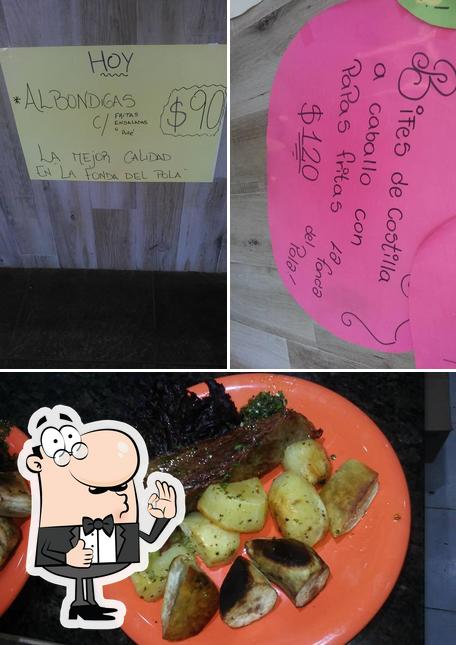 HOY
*ALBONDIGAS $90
C/ FRITAS
ENSALADAS
o Puré
LA MEJOR CALIDAD
EN LA FONDA DEL POLA
Bifes de Costilla
a caballo con
Papas fritas
$120